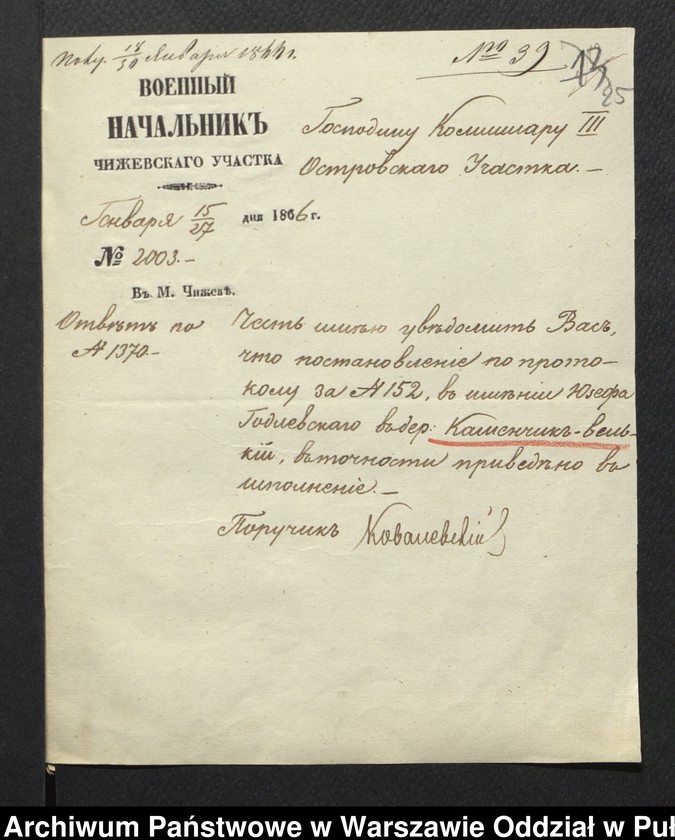 Полу. 18/30 Января 1866 г.
№ 39
25
ВОЕННЫЙ
НАЧАЛЬНИКЪ
ЧИЖЕВСКАГО УЧАСТКА
Господину Коммисару III
Островскаго Участка. —
Генваря 15/27 дня 1866 г.
№ 2003. —
Въ М. Чижевѣ.
Отвѣтъ на
№ 1370 —
Честь имѣю увѣдомить Васъ,
что постановленіе по прото-
колу за № 152, въ имѣніи Юзефа
Годлевскаго въ дер: Каменчикъ-вель-
кій, въ точности приведено въ
исполненіе. —
Поручикъ Ковалевскій
Archiwum Państwowe w Warszawie Oddział w Puł